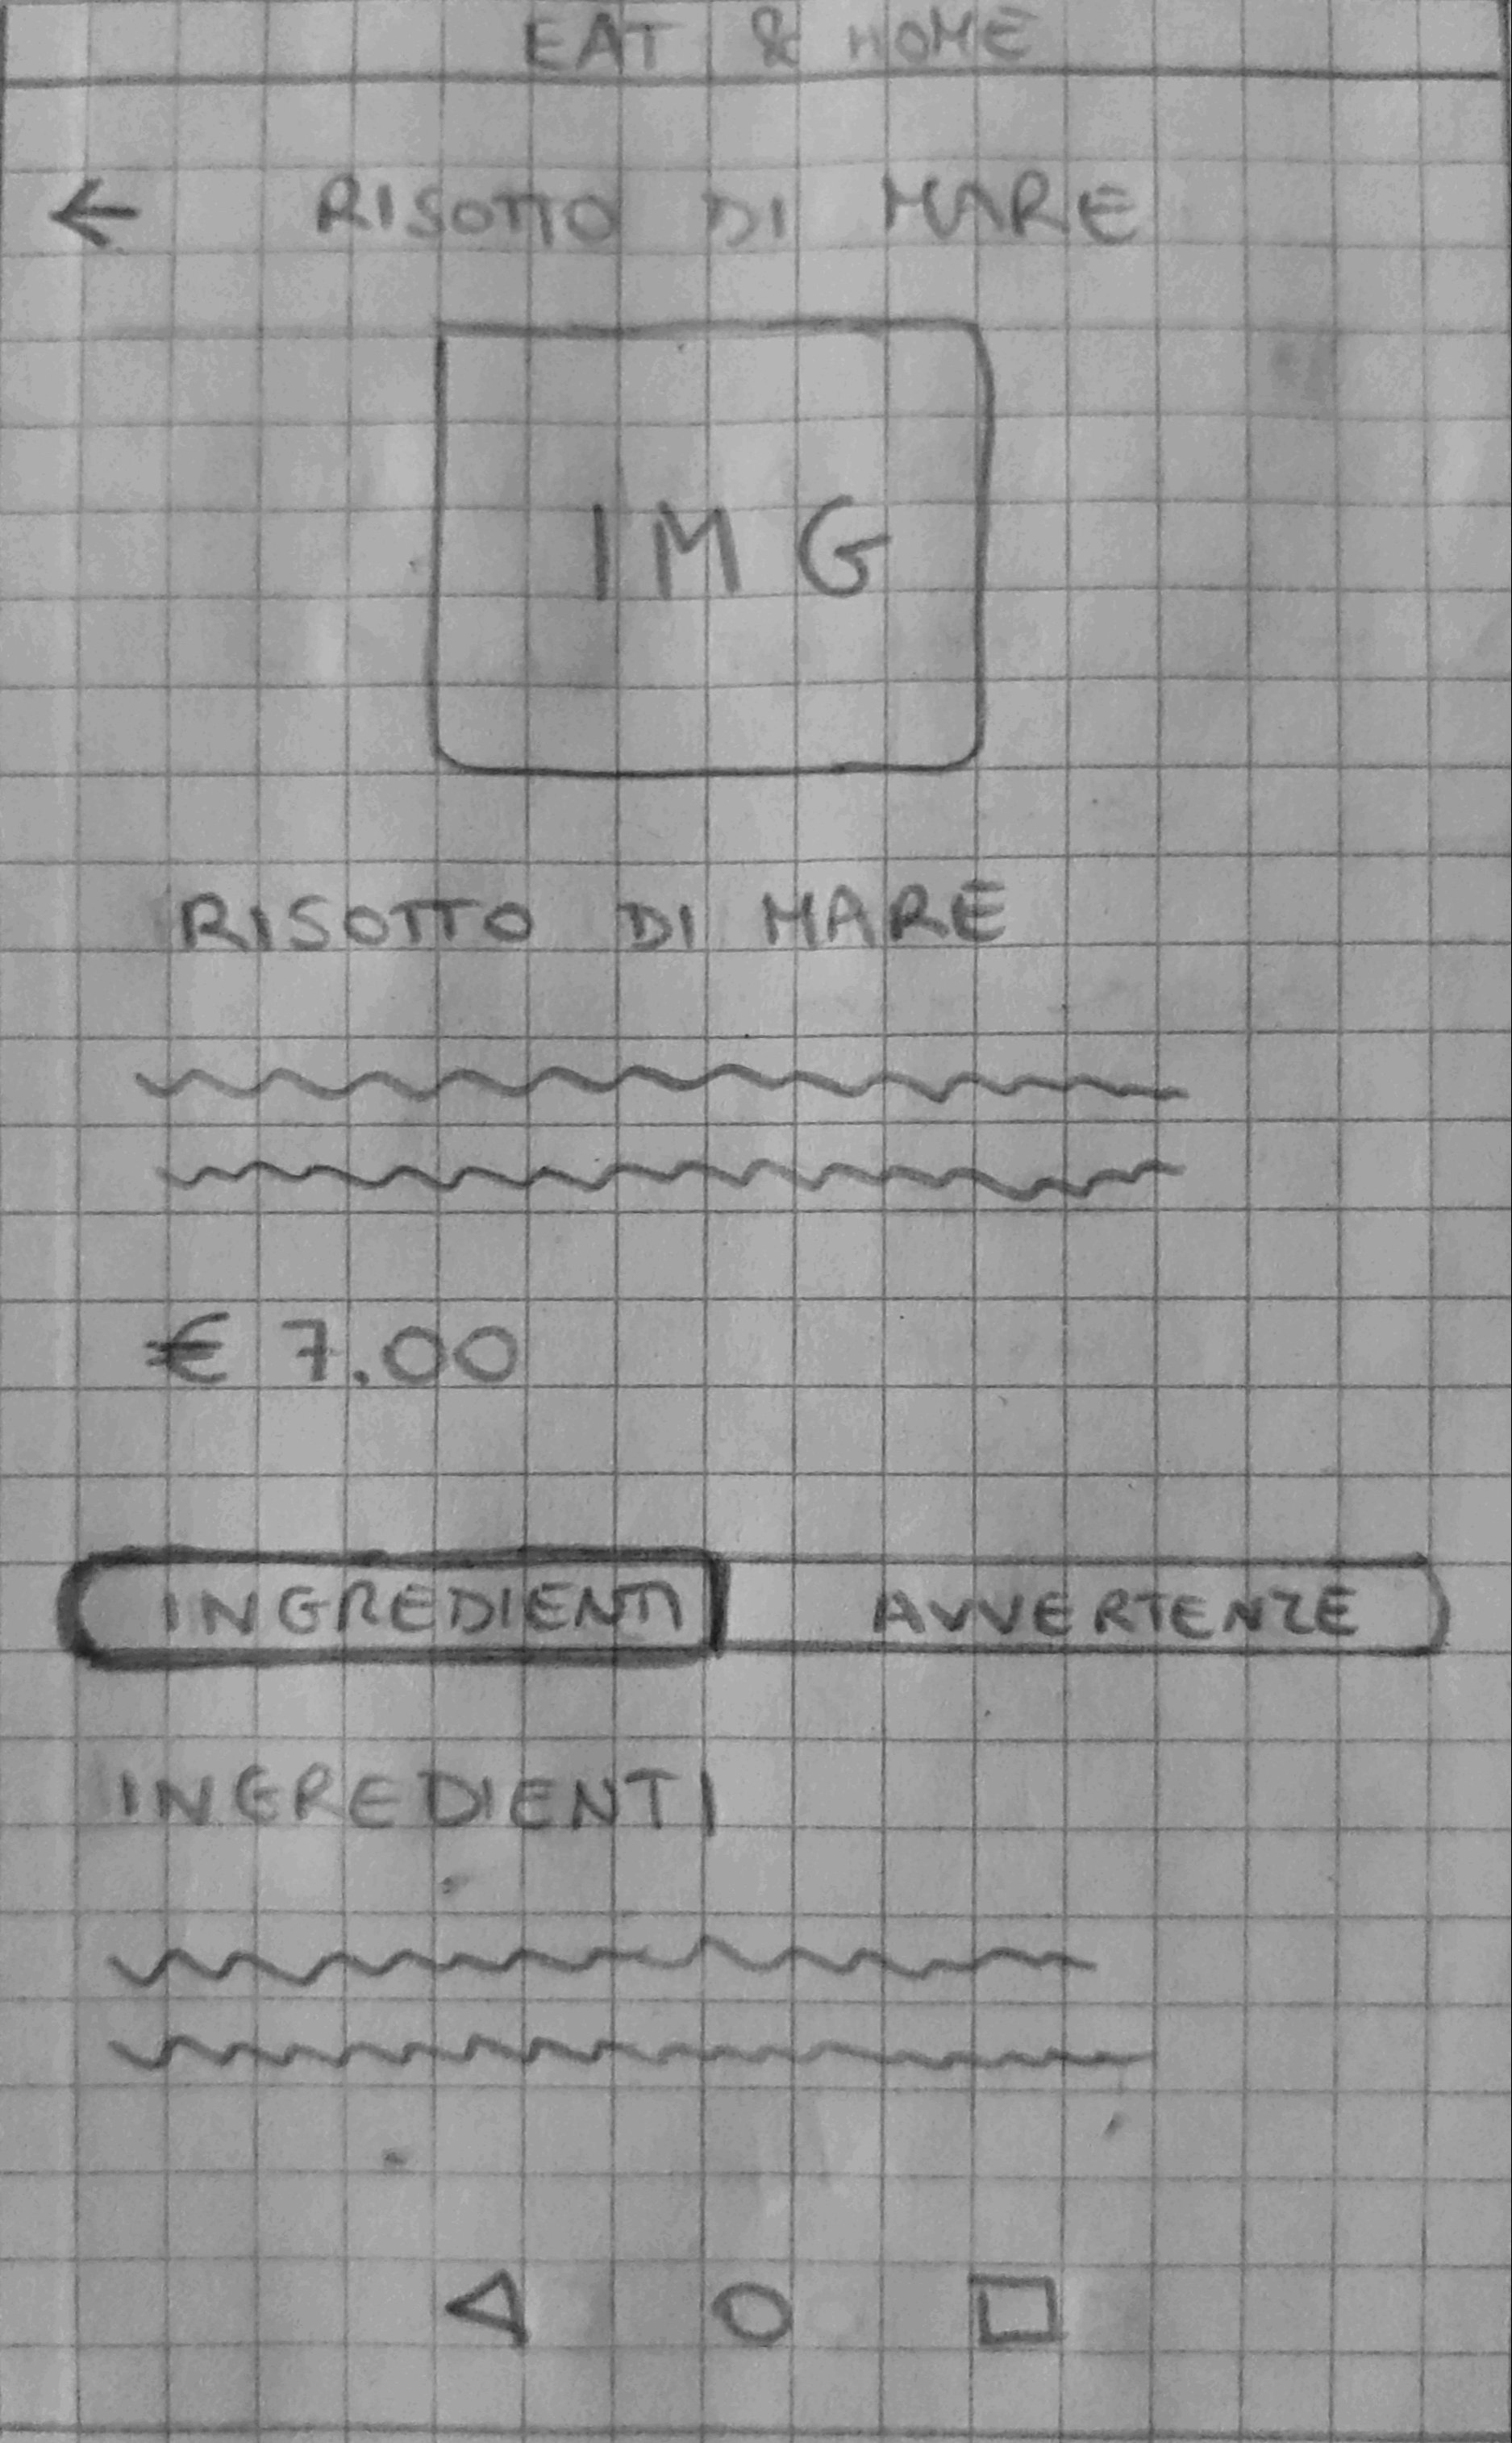 EAT & HOME
← RISOTTO DI MARE
IMG
RISOTTO DI MARE
€ 7.00
INGREDIENTI AVVERTENZE
INGREDIENTI